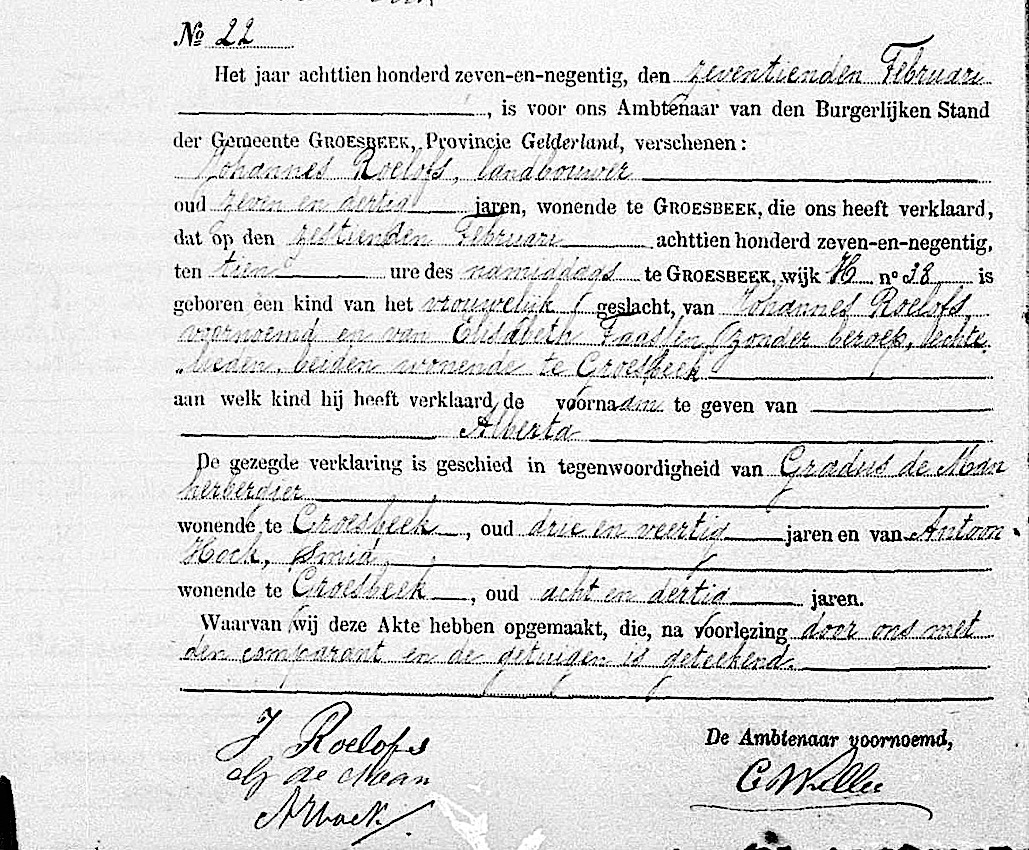 No 22
Het jaar achttien honderd zeven-en-negentig, den zeventienden Februari
, is voor ons Ambtenaar van den Burgerlijken Stand
der Gemeente GROESBEEK, Provincie Gelderland, verschenen:
Johannes Roelofs, landbouwer
oud zeven en dertig jaren, wonende te GROESBEEK, die ons heeft verklaard,
dat op den zestienden Februari achttien honderd zeven-en-negentig,
ten tien ure des namiddags te GROESBEEK, wijk H no 38 is
geboren een kind van het vrouwelijk geslacht, van Johannes Roelofs,
voornoemd en van Elisabeth Faassen, zonder beroep, echte
lieden, beiden wonende te Groesbeek
aan welk kind hij heeft verklaard de voornaam te geven van
Alberta
De gezegde verklaring is geschied in tegenwoordigheid van Gradus de Man
herbergier
wonende te Groesbeek, oud drie en veertig jaren en van Antoon
Hock, Smid,
wonende te Groesbeek, oud acht en dertig jaren.
Waarvan wij deze Akte hebben opgemaakt, die, na voorlezing door ons met
den comparant en de getuigen is geteekend.
J Roelofs
G de Maan
De Ambtenaar voornoemd,